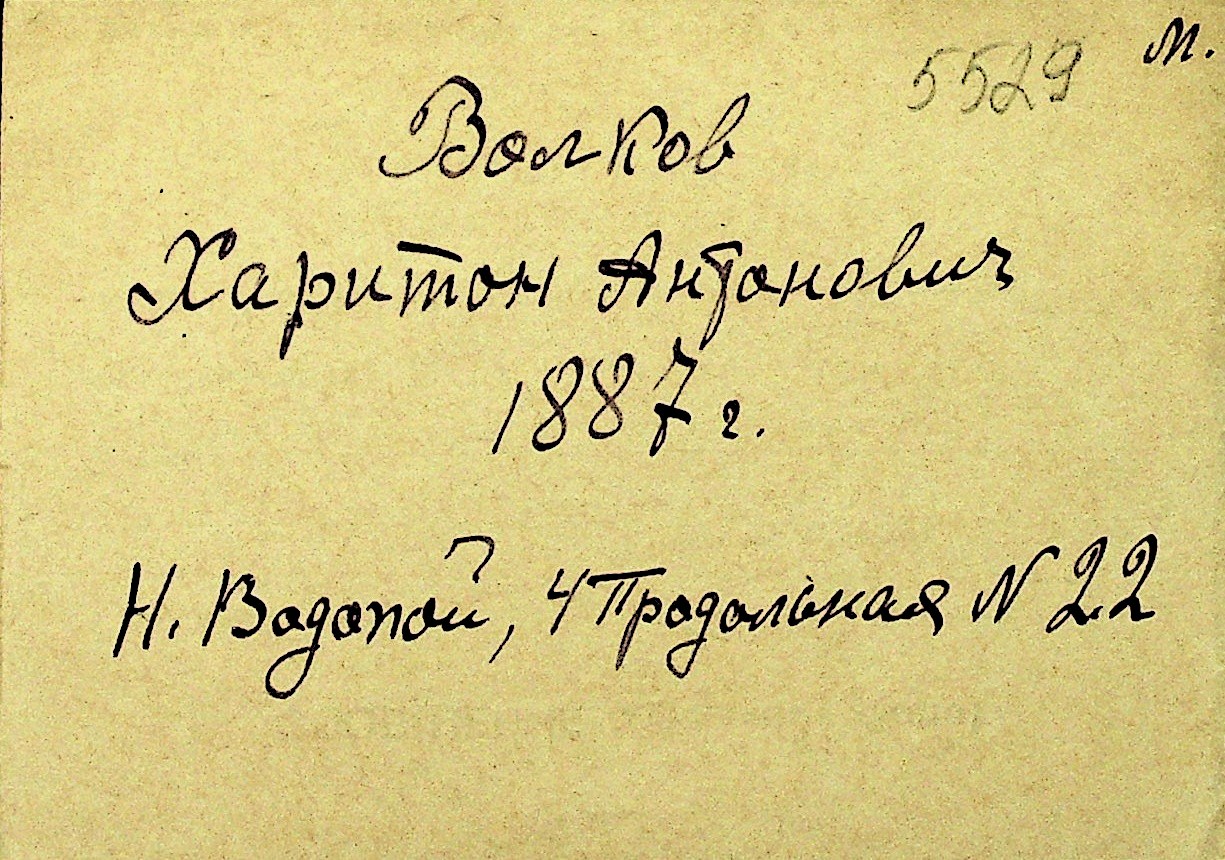 5529 м.
Волков
Харитон Антонович
1887 г.
Н. Водопой, 4 Продольная N 22